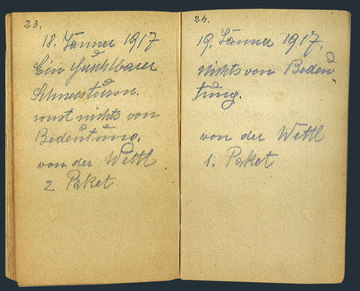 23.
18. Jänner 1917
Ein furchtbarer
Schneesturm.
sonst nichts von
Bedeutung.
von der Wettl
2 Paket
24.
19. Jänner 1917.
nichts von Bedeu
tung.
von der Wettl
1. Paket